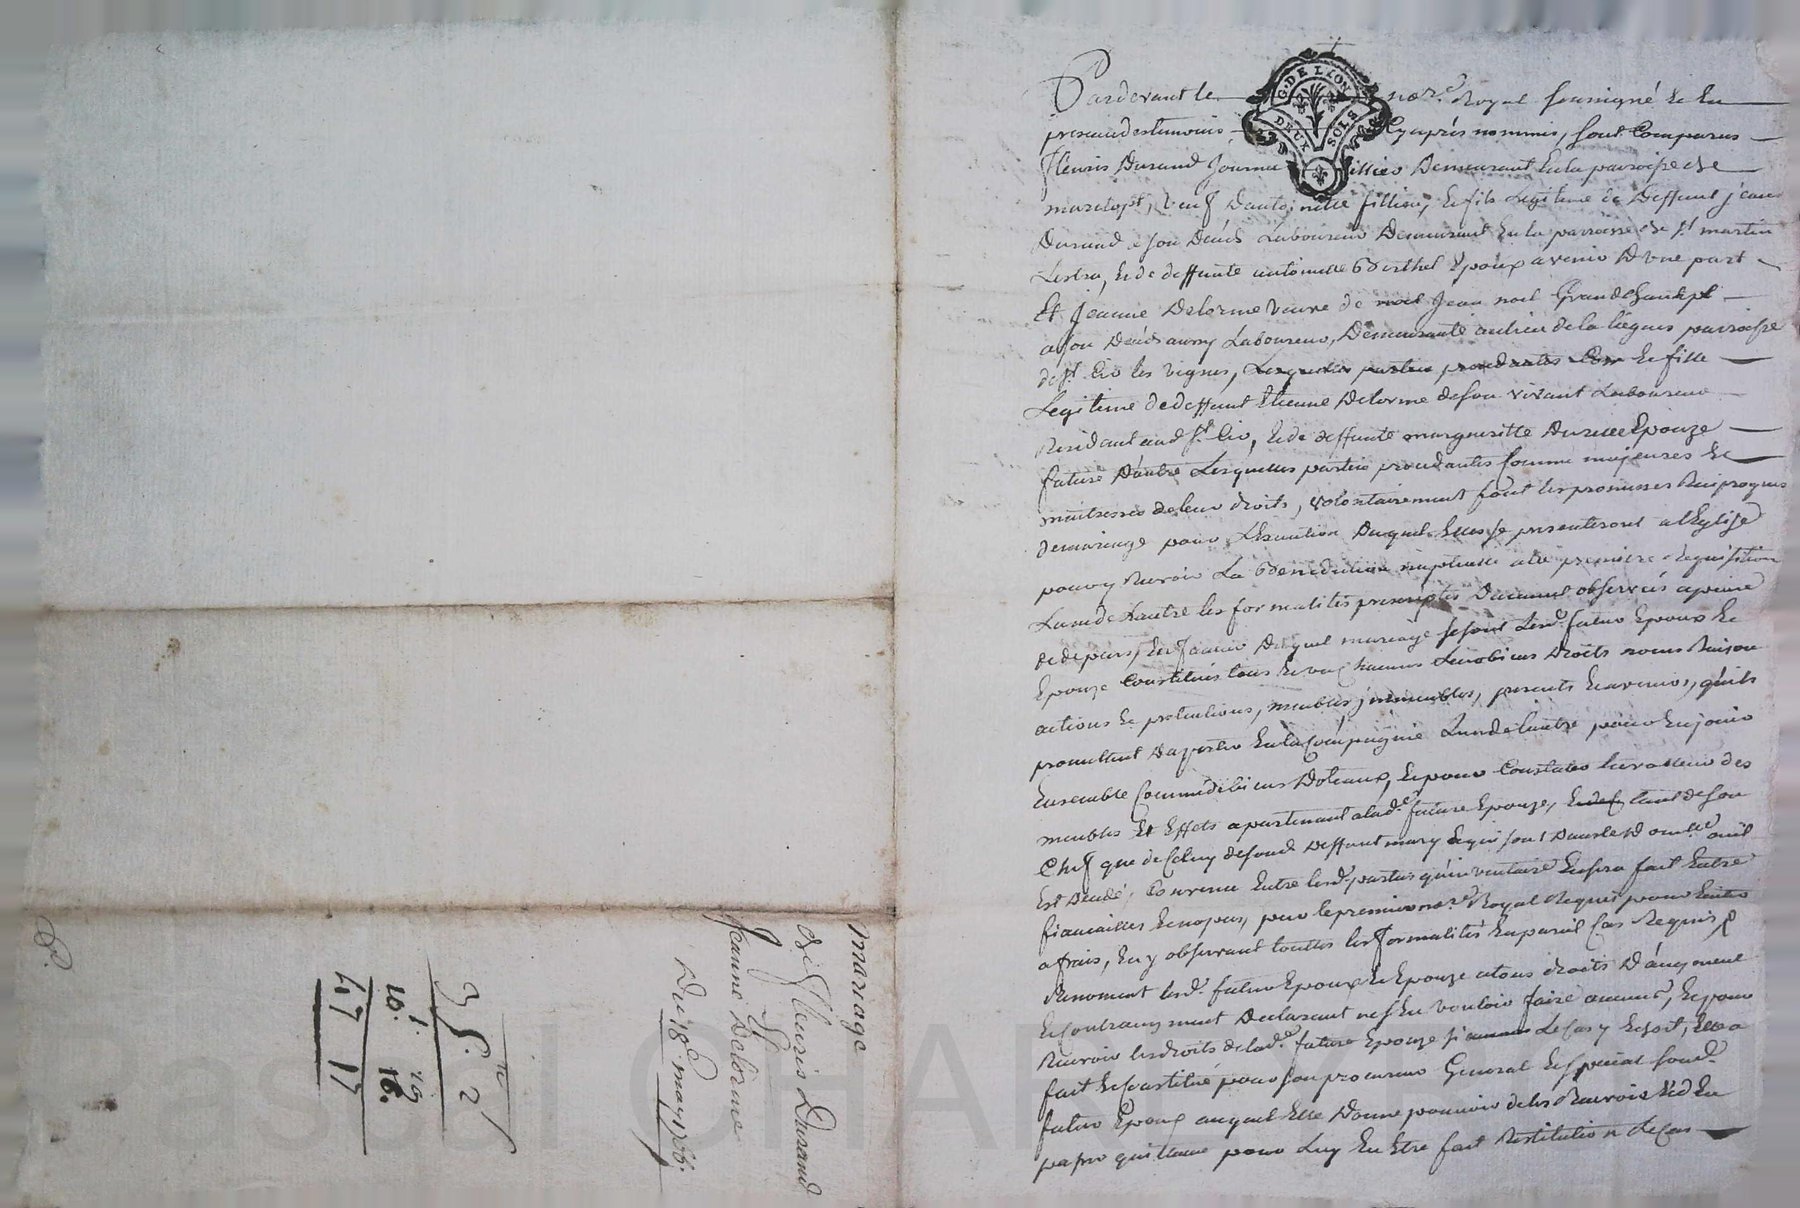 Pardevant le no.re Royal soussigné et En
presance des temoins Cy après nommés, sont Comparus
fleuris Durand Journallier Demeurant En la parroisse de
marclopt, veuf D'antoinette fillion, Et fils Legitime de Deffunt jean
Durand a son décéds Laboureur Demeurant En la parroisse de st martin
Lestra, Et de deffunte antoinette Berthet Epoux avenir D'une part
Et Jeanne Delorme veuve de Jean noel Grand
a son décéds aussy Laboureur, Demeurante au lieu de la parroisse
de st Cir les vignes, Lesquelles parties procédantes Comme Et fille
Legitime de deffunt Etienne Delorme de son vivant Laboureur
Residant aud st Cir, Et de deffunte margueritte Epouze
future D'autre Lesquelles parties procédantes Comme majeures Et
maitresses de leur droits, volontairement font les promesses Reciproques
de mariage pour L'Execution Duquel Elles se presenteront a l'Eglise
pour y Recevoir La Benediction nuptialle a la premiere Requisition
L'un de L'autre les formalités prescriptes Duement observées a peine
de depens, En faveur Duquel mariage se sont Lesd. futur Epoux Et
Epouze Constitués tous Et un chacuns Leurs biens Droits noms Raisons
actions Et pretentions, meubles, immeubles, presents Et avenir, qu'ils
promettent D'aporter En la Compagnie L'un de l'autre pour En jouir
Ensemble Comme de biens Dotaux, Et pour Constater la valleur des
meubles Et Effets apartenant a lad.e future Epouze, tant de son
Chef que de Celuy de son Deffunt mary Et qui sont Dans le D omlle ouil
Est Décédé, Convenu Entre lesd. parties qu'inventaire En sera fait Entre
fiancailles Et nopces, par le premier no.re Royal Requis pour Eviter
a frais, En y observant touttes les formalités En pareil Cas Requis,
Renoncent lesd. futur Epoux Et Epouze a tous droits D'augment
Et Contraugment Declarant n'en En vouloir faire aucuns, Et pour
Recevoir les droits de lad.e future Epouze si Le Cas y Echoit, Elle a
fait Et Constitué pour son procureur General Et special sond.
futur Epoux auquel Elle Donne pouvoir de les Recevoir Et d'En
passer quittance pour Luy En Etre fait Restitution Le Cas
mariage
de fleuris Durand
Et
Jeanne Delorme
Du 18e may 1766.
3 s. 2
1. 19
10. 16.
47 17
G. DE LION
DEUX SOLS
Pascal CHAR